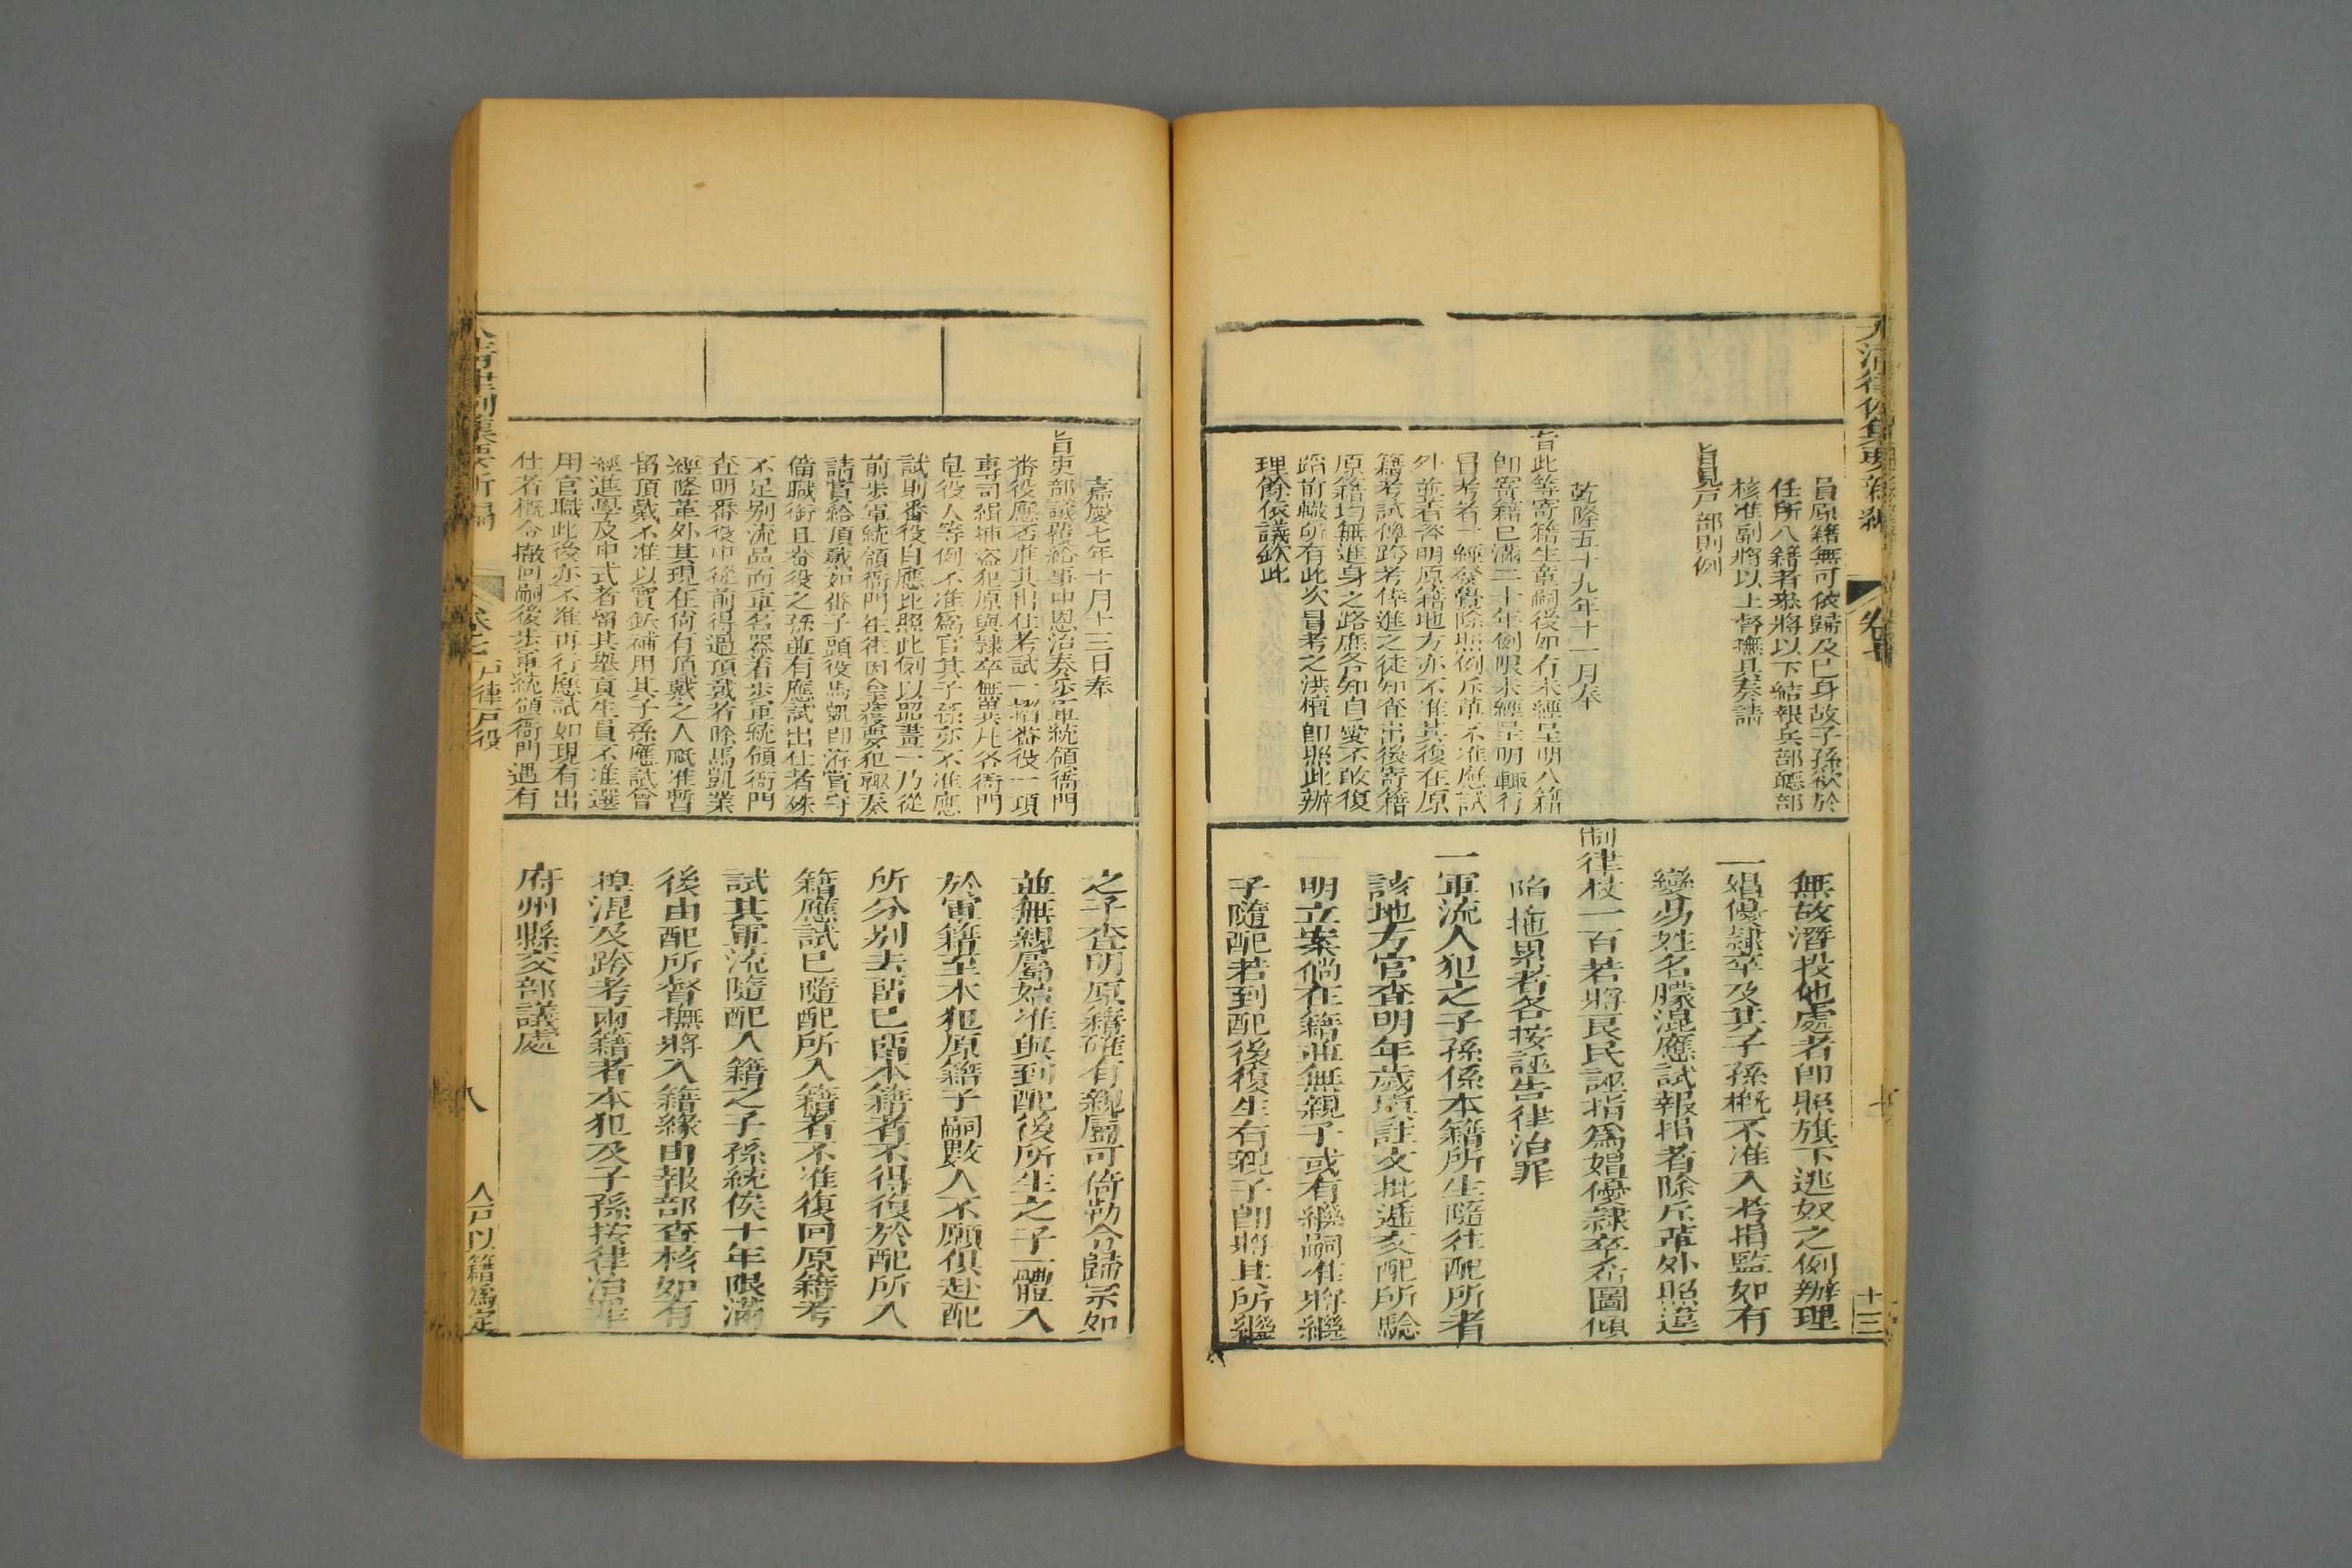 大清律例集要新編
卷七
十三
員原籍無可依歸及已身故子孫欲於
任所入籍者叅將以下結報兵部聽部
核准副將以上督撫具奏請
旨見戸部則例
乾隆五十九年十一月奉
旨此等寄籍生童嗣後如有未經呈明入籍
卽寄籍已滿二十年例限未經呈明輒行
冒考者一經發覺除照例斥革不准應試
外並着咨明原籍地方亦不准其復在原
籍考試俾跨考倖進之徒知查出後寄籍
原籍均無進身之路庶各知自愛不敢復
蹈前轍所有此次冒考之洪檀卽照此辦
理餘依議欽此
無故潛投他處者卽照旗下逃奴之例辦理
一娼優隷卒及其子孫概不准入考捐監如有
變易姓名朦混應試報捐者除斥革外照違
制律杖一百若將良民誣指爲娼優隷卒希圖傾
陷拖累者各按誣告律治罪
一軍流人犯之子孫係本籍所生隨往配所者
該地方官查明年歲塡註文批遞交配所驗
明立案倘在籍並無親子或有繼嗣准將繼
子隨配若到配後復生有親子卽將其所繼
嘉慶七年十月十三日奉
旨吏部議覆給事中恩治奏步軍統領衙門
番役應否准其出仕考試一摺番役一項
專司緝捕盜犯原與隷卒無異凡各衙門
皂役人等例不准爲官其子孫亦不准應
試則番役自應比照此例以昭畫一乃從
前步軍統領衙門往往因拿獲要犯輒奏
請賞給頂戴如番子頭役馬凱卽洊賞守
備職銜且番役之孫並有應試出仕者殊
不足别流品而重名器着步軍統領衙門
查明番役中從前得過頂戴者除馬凱業
經降革外其現在尚有頂戴之人祗准暫
留頂戴不准以實缺補用其子孫應試曾
經進學及中式者留其舉貢生員不准選
用官職此後亦不准再行應試如現有出
仕者概令撤回嗣後步軍統領衙門遇有
之子查明原籍確有親屬可倚勒令歸宗如
並無親屬始准與到配後所生之子一體入
於軍籍至本犯原籍子嗣數人不願俱赴配
所分别去留已留本籍者不得復於配所入
籍應試已隨配所入籍者不准復回原籍考
試其軍流隨配入籍之子孫統俟十年限滿
後由配所督撫將入籍緣由報部查核如有
捏混及跨考兩籍者本犯及子孫按律治罪
府州縣交部議處
大清律例集要新編
卷七
戸律戸役
八
人戸以籍爲定